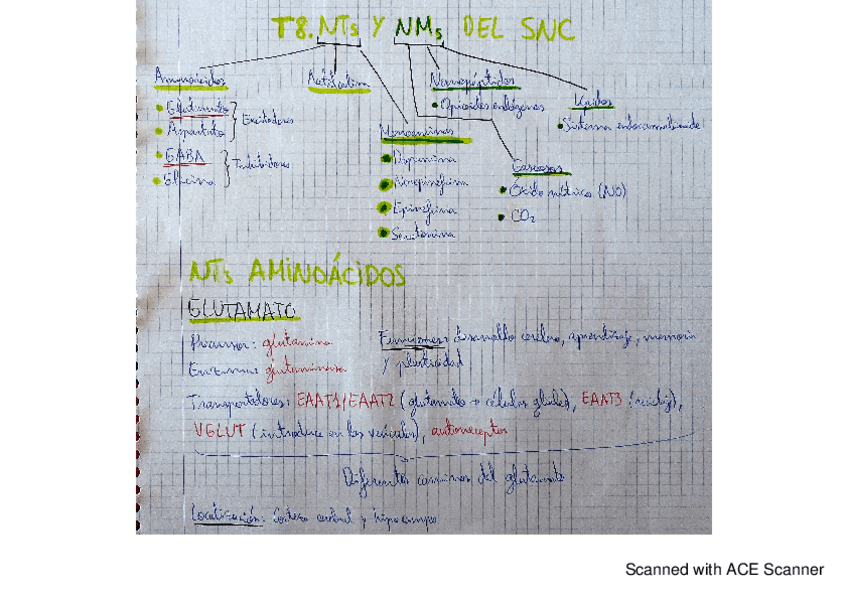 T8. NTs Y NMs DEL SNC
Aminoácidos
Glutamato
Aspartato
Excitadores
GABA
Glicina
Inhibidores
Acetilcolina
Monoaminas
Dopamina
Norepinefrina
Epinefrina
Serotonina
Neuropéptidos
Opioides endógenos
Gaseosos
Óxido nítrico (NO)
CO₂
Lípidos
Sistema endocannabinoide
NTs AMINOÁCIDOS
GLUTAMATO
Precursor: glutamina
Enzima: glutaminasa
Funciones: desarrollo cerebro, aprendizaje, memoria
y plasticidad
Transportadores: EAAT1/EAAT2 (glutamato → células gliales), EAAT3
VGLUT (introduce en las vesículas), autorreceptor
Diferentes caminos del glutamato
Localización: Corteza cerebral y hipocampo
Scanned with ACE Scanner